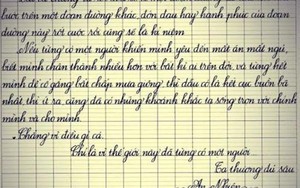 lướt trên một đoạn đường khác, đớn đau hay hạnh phúc của đoạn
đường này rốt cuộc rồi cũng sẽ là kỉ niệm.
Nếu từng có một người khiến mình yêu đến mất ăn mất ngủ,
biết mình chân thành nhiều hơn với bất kì ai trên đời, và từng hết
mình để cố gắng bất chấp mưa giông, thì dẫu có là kết cục buồn bã
nhất, thì ít ra, cũng đã có những khoảnh khắc ta sống trọn với chính
mình và cho mình.
Chẳng vì điều gì cả.
Chỉ là vì thế giới này đã từng có một người
Ta thương dài sâu
An Nhiên